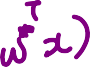 w^T x)